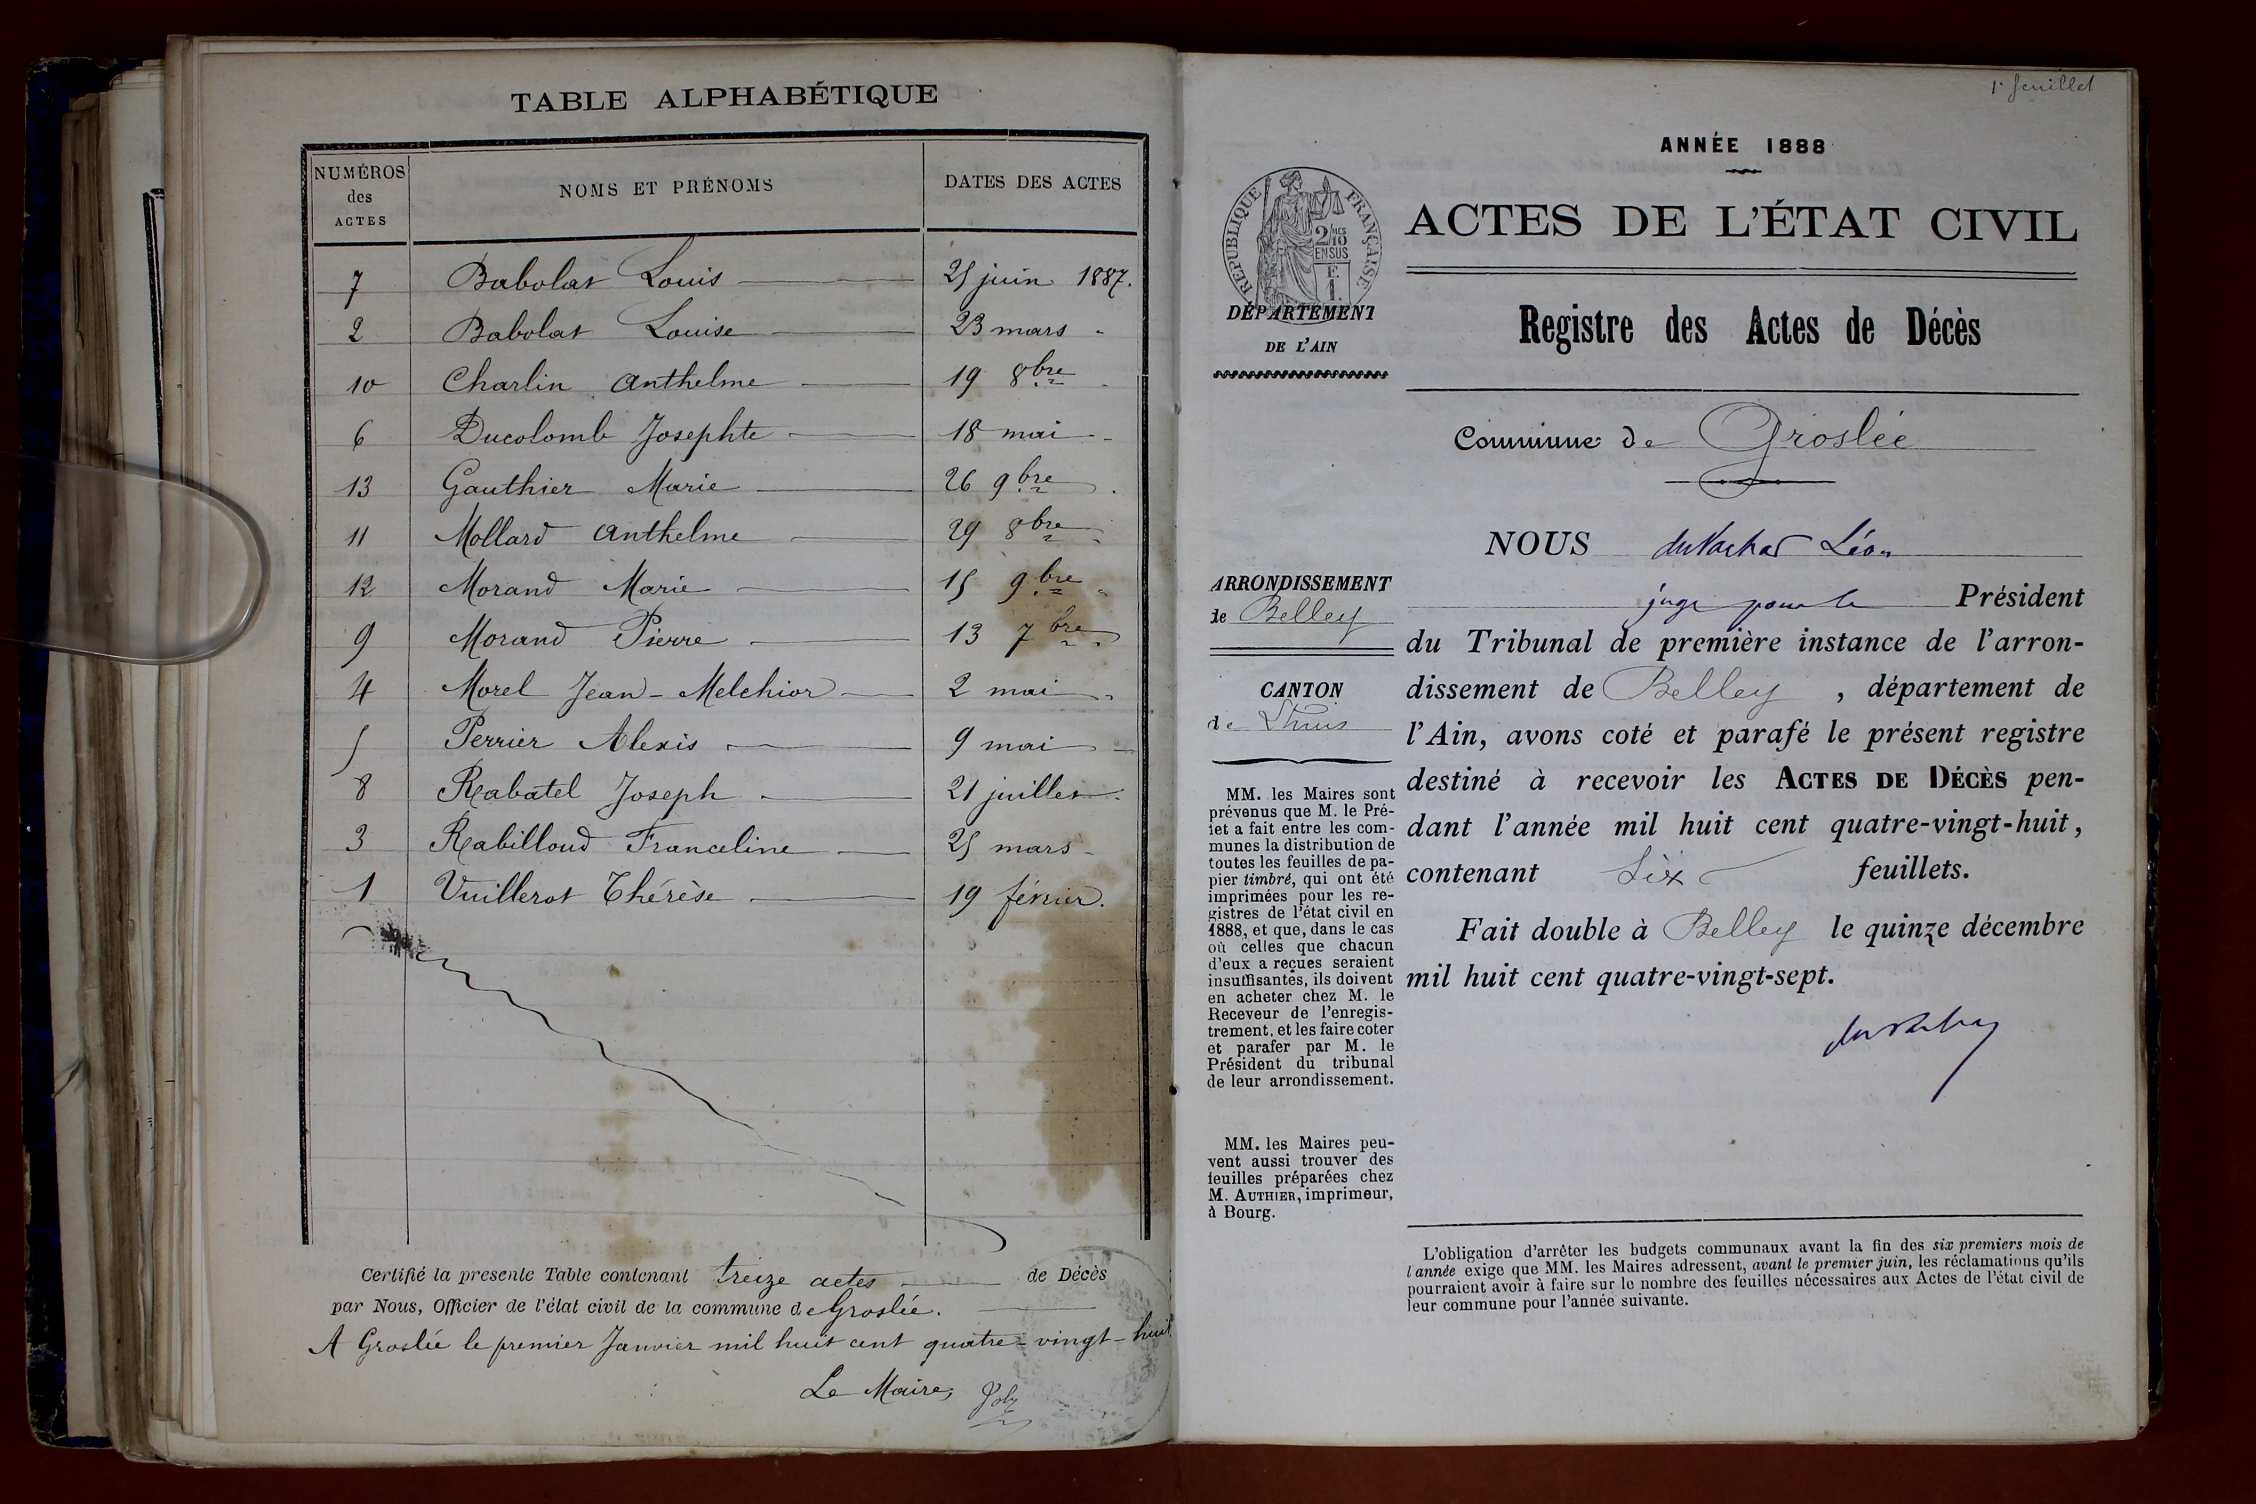 TABLE ALPHABÉTIQUE
NUMÉROS des ACTES NOMS ET PRÉNOMS DATES DES ACTES
7 Babolat Louis 25 juin 1887.
2 Babolat Louise 23 mars
10 Charlin Anthelme 19 8bre
6 Ducolomb Josephte 18 mai
13 Gauthier Marie 26 9bre
11 Mollard Anthelme 29 8bre
12 Morand Marie 15 9bre
9 Morand Pierre 13 7bre
4 Morel Jean-Melchior 2 mai
5 Perrier Alexis 9 mai
8 Rabatel Joseph 21 juillet
3 Rabilloud Franceline 25 mars
1 Vuillerot Thérèse 19 février.
Certifié la presente Table contenant treize actes de Décès
par Nous, Officier de l'état civil de la commune de Groslée.
A Groslée le premier Janvier mil huit cent quatre-vingt-huit
Le Maire,
1er feuillet
ANNÉE 1888
RÉPUBLIQUE FRANÇAISE
2/10 MES
EN SUS
ACTES DE L'ÉTAT CIVIL
DÉPARTEMENT
DE L'AIN
Registre des Actes de Décès
Commune de Groslée
ARRONDISSEMENT
de Belley
CANTON
de Lhuis
MM. les Maires sont
prévenus que M. le Pré-
fet a fait entre les com-
munes la distribution de
toutes les feuilles de pa-
pier timbré, qui ont été
imprimées pour les re-
gistres de l'état civil en
1888, et que, dans le cas
où celles que chacun
d'eux a reçues seraient
insuffisantes, ils doivent
en acheter chez M. le
Receveur de l'enregis-
trement, et les faire coter
et parafer par M. le
Président du tribunal
de leur arrondissement.
MM. les Maires peu-
vent aussi trouver des
feuilles préparées chez
M. AUTHIER, imprimeur,
à Bourg.
NOUS Léon
juge pour le Président
du Tribunal de première instance de l'arron-
dissement de Belley, département de
l'Ain, avons coté et parafé le présent registre
destiné à recevoir les ACTES DE DÉCÈS pen-
dant l'année mil huit cent quatre-vingt-huit,
contenant Six feuillets.
Fait double à Belley le quinze décembre
mil huit cent quatre-vingt-sept.
L'obligation d'arrêter les budgets communaux avant la fin des six premiers mois de
l'année exige que MM. les Maires adressent, avant le premier juin, les réclamations qu'ils
pourraient avoir à faire sur le nombre des feuilles nécessaires aux Actes de l'état civil de
leur commune pour l'année suivante.